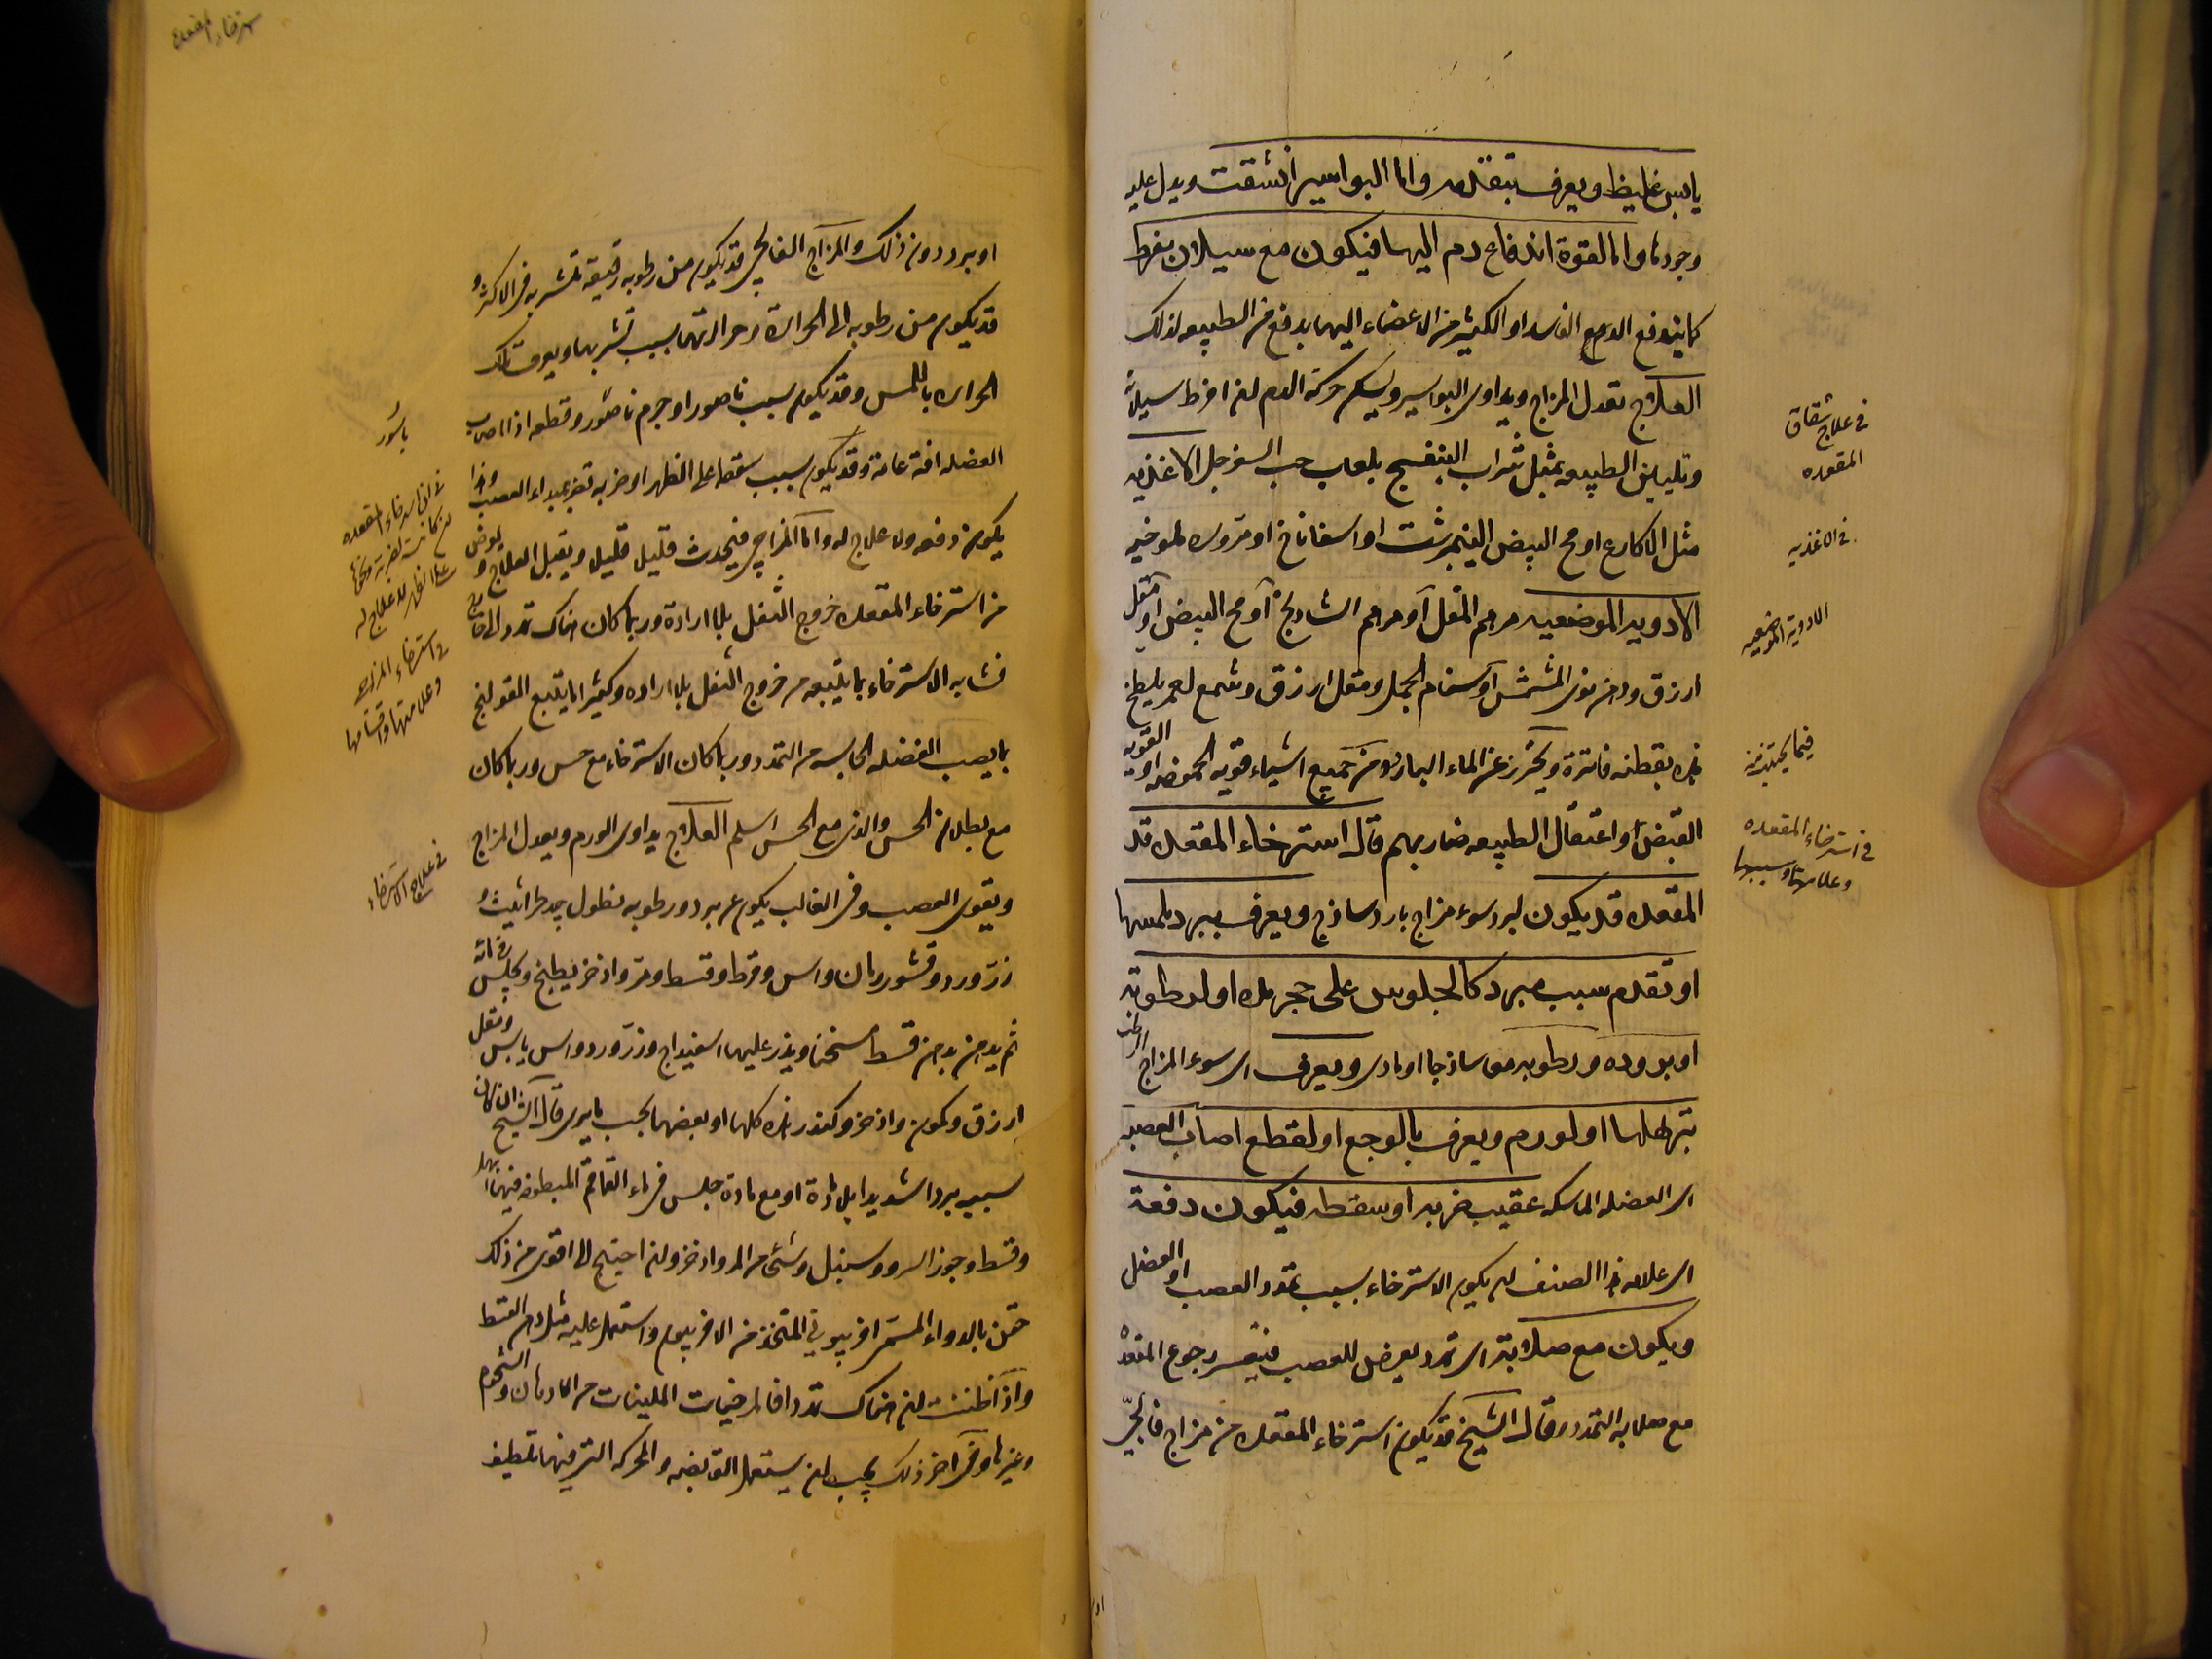 يابس غليظ ويعرف بتقدمه واما البواسير انشقت ويدل عليه
وجودها واما لقوة اندفاع دم اليها فيكون مع سيلان مفرط
كما يندفع الدم الفاسد او الكثير من الاعضاء اليها بدفع من الطبيعه لذلك
العلاج تعدل المزاج ويداوى البواسير ويسكن حركة الدم ان افرط سيلانه
وتليين الطبيعه بمثل شراب البنفسج بلعاب حب السفرجل الاغذيه
مثل الاكارع او مح البيض النيمبرشت او اسفاناخ او مزوره ملوخيه
الادويه الموضعيه مرهم المقل او مرهم الشادنج او مح البيض او مقل
ازرق ودهن نوى المشمش او سنام الجمل ومقل ازرق وشمع لعمر يلطخ
هذه بقطنه فاترة ويحترز عن الماء البارد ومن جميع اشياء قويه الحموضه او القويه
القبض او اعتقال الطبيعه ضار بهم قال استرخاء المقعده قد
المقعده قد يكون لبرد سوء مزاج بارد ساذج ويعرف ببرد ملمسها
او تقدم سبب مبرد كالجلوس على حجر بارد او لرطوبة
او بروده ورطوبه معا ساذجا او مادى ويعرف اى سوء المزاج الرطب
بترهلها او لورم ويعرف بالوجع او لقطع اصاب العصبه
اى العضله الماسكه عقيب ضربه او سقطه فيكون دفعة
اى علامه هذا الصنف ان يكون الاسترخاء بسبب تمدد العصب او العضل
ويكون مع صلابة اى تمدد يعرض للعصب فيعسر رجوع المقعدة
مع صلابه التمدد وقال الشيخ قد يكون استرخاء المقعده من مزاج فالجى
فى علاج شقاق
المقعده
فى الاغذيه
الادوية الموضعيه
فيما يجتنب منه
فى استرخاء المقعده
وعلامتها وسببها
استرخاء المقعده
او برد دون ذلك والمزاج الفالجى قد يكون من رطوبه رقيقه تتشربه فى الاكثر و
قد يكون من رطوبه الى الحرارة وحرارتها بسبب تشربها ويعرف تلك
الحراره باللمس وقد يكون بسبب ناصور او جرم ناصور وقطعه اذا اصاب
العضله افة عامة وقد يكون بسبب سقطه على الظهر او ضربه تضر بمبداء العصب وهذا
يكون دفعه ولا علاج له واما المزاجى فيحدث قليل قليل ويقبل العلاج و يعرض
من استرخاء المقعده خروج الثفل بلا ارادة وربما كان هناك تمدد الى خارج
فشابه الاسترخاء بما يتبعه من خروج الثفل بلا اراده وكثيرا ما يتبع القولنج
بما يصيب العضله الحابسه من التمدد وربما كان الاسترخاء مع حس وربما كان
مع بطلان الحس والذى مع الحس اسلم العلاج يداوى الورم ويعدل المزاج
ويقوى العصب وفى الغالب يكون عن برد ورطوبه نطول جيد طراثيث و
زر ورد وقشور رمان واس وقرط وقسط ومر واذخر يطبخ ويجلس فى مائه
ثم يدهن بدهن قسط مسخنا ويذر عليها اسفيداج وزر ورد واس يابس ومقل
ازرق وكمون واذخر وكندر هذه كلها او بعضها بحسب ما يرى قال الشيخ ان كان
سببه بردا شديدا بلا مادة او مع مادة جلس فى ماء القماقم المطبوخ فيها ابهل
وقسط وجوز السرو وسنبل وشئ من المر واذخر وان احتيج الى اقوى من ذلك
حقن بالدواء المسمى افربيونى المتخذ من الافربيون واستعمل عليه مثل دهن القسط
واذا ظننت ان هناك تمدد فالمرخيات الملينات من الادهان والشحوم
وغيرها وفى اخر ذلك يجب ان يستعمل القابضه والمحركه التى فيها تلطيف
باسور
فى ان استرخاء المقعده
ان كانت لضربة ونحوها
على الظهر لا علاج له
فى استرخاء المزاجى
وعلامتها واقسامها
فى علاج الاسترخاء